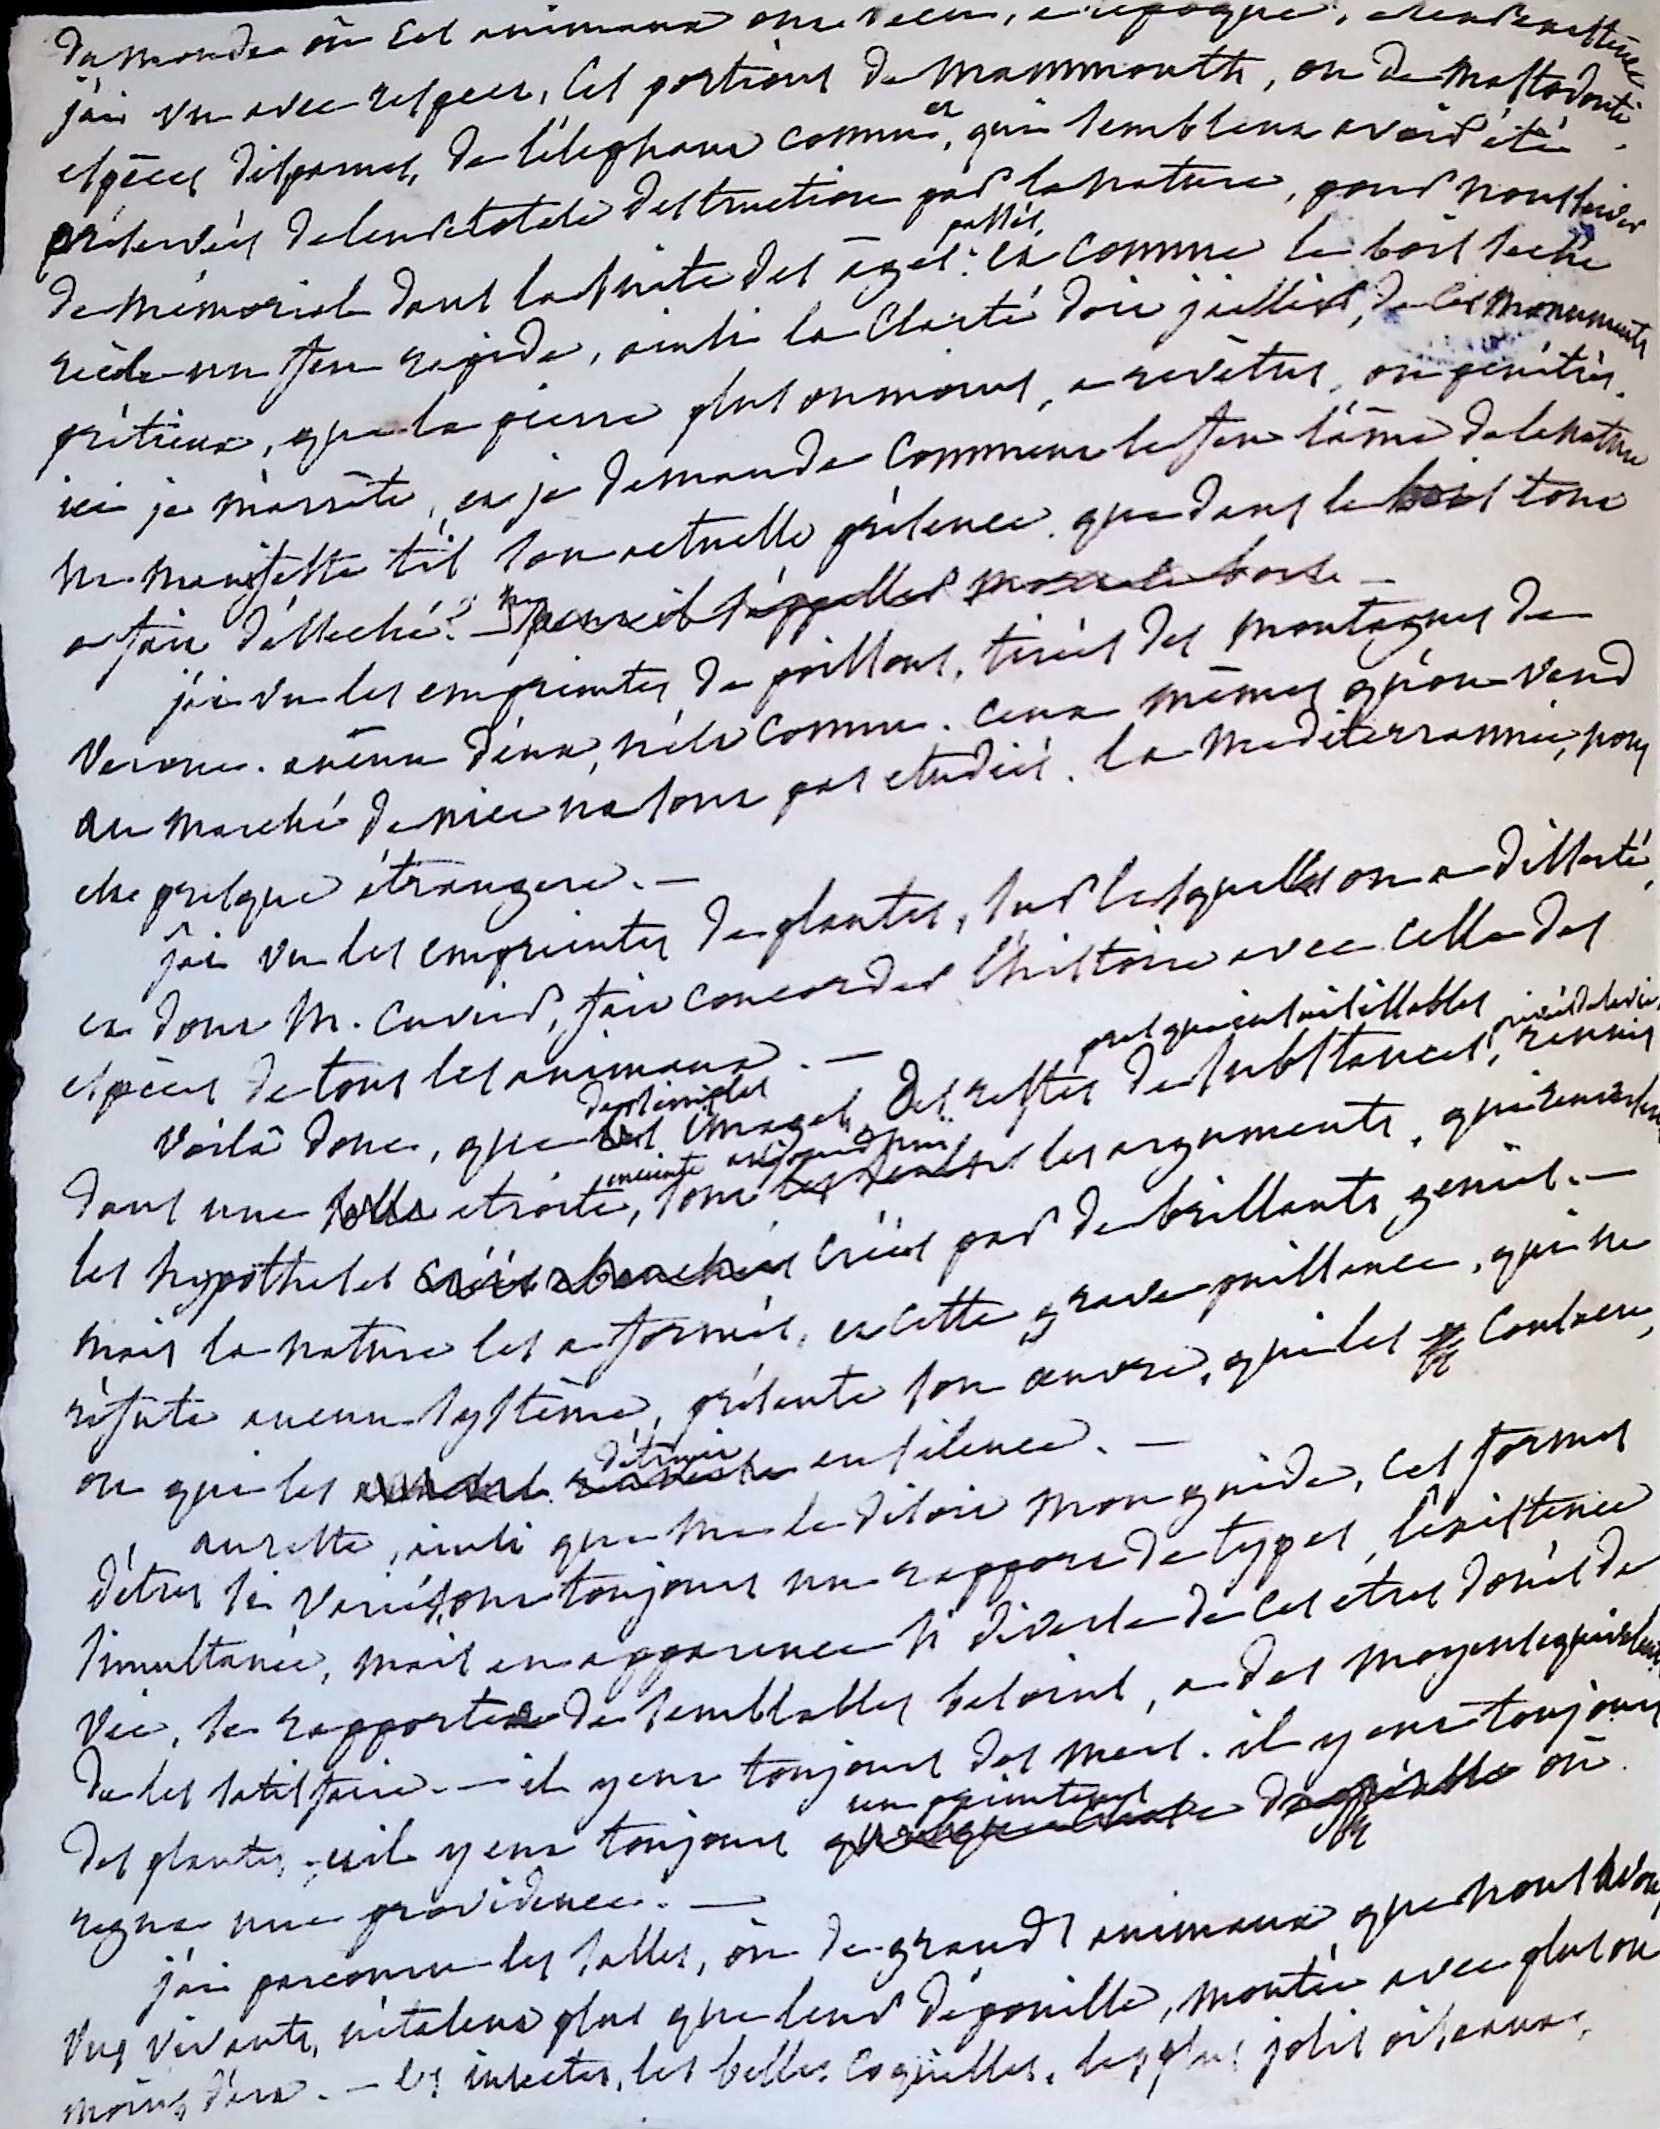 du monde où ces animaux ont vécu, à l'époque,
j'ai vu avec respect, ces portions de mammouth, ou de mastodonte
espèces disparues, de l'élephant connu, qui semblent avoir été
préservées de leur totale destruction par la nature, pour nous servir
de mémorial dans la suite des âges passés. et comme le bois séché
recèle un feu rapide, ainsi la clarté doit jaillir, de ces monuments
prétieux, que la pierre plus ou moins, a revêtus, ou pénétrés.
ici je m'arrête, et je demande comment le feu l'âme de la nature
ne manifeste t'il son actuelle présence que dans le bois tout
a fait désséché? -
j'ai vu les empreintes de poissons, tirées des montagnes de
Verone. aucun d'eux, n'est connu. ceux mêmes qu'on vend
au marché de nice ne sont pas etudiés. la mediterrannée, nous
est presque étrangere. -
j'ai vu les empreintes de plantes, sur lesquelles on a disserté,
et dont M. Cuvier, fait concorder l'histoire avec celle des
espèces de tous les animaux. -
presqu'insaisissables privés de la vie,
Voilà donc, que des images, des restes de substances, reunis
dans une enceinte etroite, sont aujourd'hui les arguments, qui renversent
les hypotheses créés par de brillants genies. -
mais la nature les a formés, et cette grave puissance, qui ne
réfute aucun système, présente son œuvre, qui les consacre,
ou qui les détruit en silence. -
au reste, ainsi que me le disoit mon guide, ces formes
d'êtres si variés, ont toujours un rapport de types, l'existence
simultanée, mais en apparence si diverse de ces etres doués de
vie, se rapporte de semblables besoins, a des moyens equivalents
de les satisfaire. - il y eut toujours des mers. il y eut toujours
des plantes, et il y eut toujours un printems où
regna une providence. -
j'ai parcouru les salles, où de grands animaux que nous avons
vus vivants, n'étalent plus que leur dépouille, montée avec plus ou
moins d'art. - les insectes, les belles coquilles, les plus jolis oiseaux,